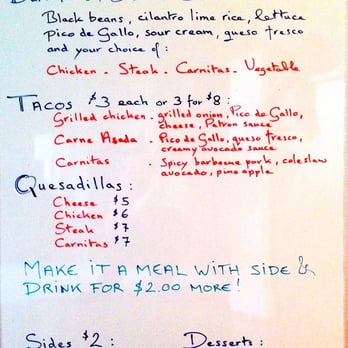 Black beans, cilantro lime rice, lettuce
Pico de Gallo, sour cream, queso fresco
and your choice of :
Chicken . Steak . Carnitas . Vegetable
Tacos $3 each or 3 for $8 :
Grilled chicken . grilled onion, Pico de Gallo,
cheese, Patron sauce
Carne Asada . Pico de Gallo, queso fresco,
creamy avocado sauce
Carnitas . Spicy barbecue pork, coleslaw
avocado, pineapple
Quesadillas :
Cheese $5
Chicken $6
Steak $7
Carnitas $7
MAKE IT A MEAL WITH SIDE &
DRINK FOR $2.00 MORE!
Sides $2 : Desserts :